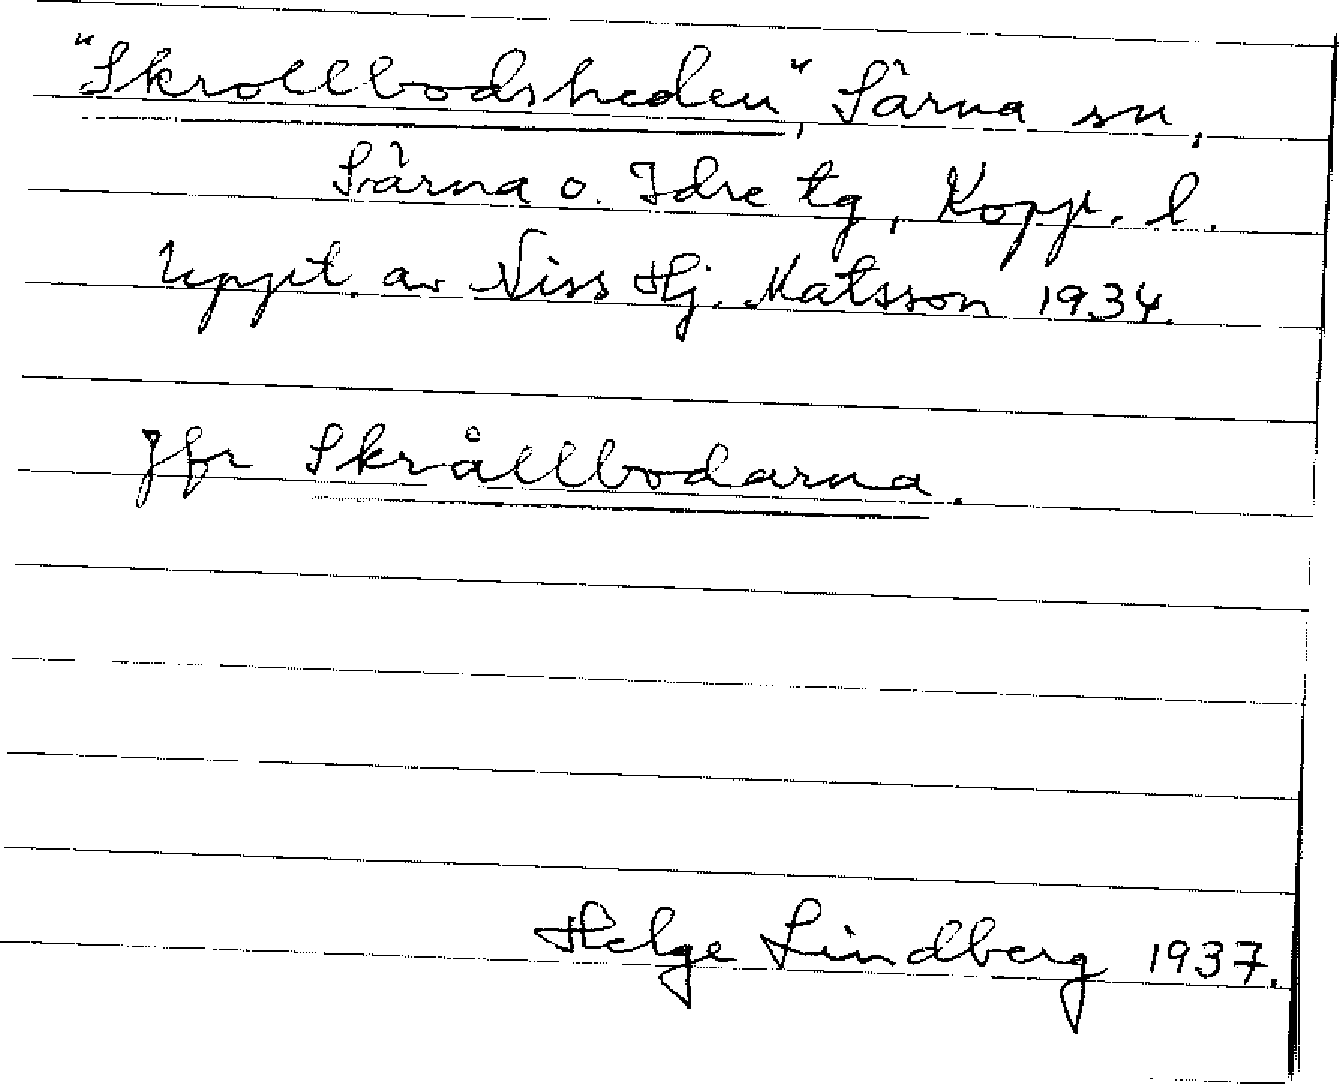 "Skrollbodsheden", Särna sn,
Särna o. Idre tg, Kopp. l.
Uppt. av Niss Hj. Matsson 1934.
Jfr Skrållbodarna.
Helge Lindberg 1937.